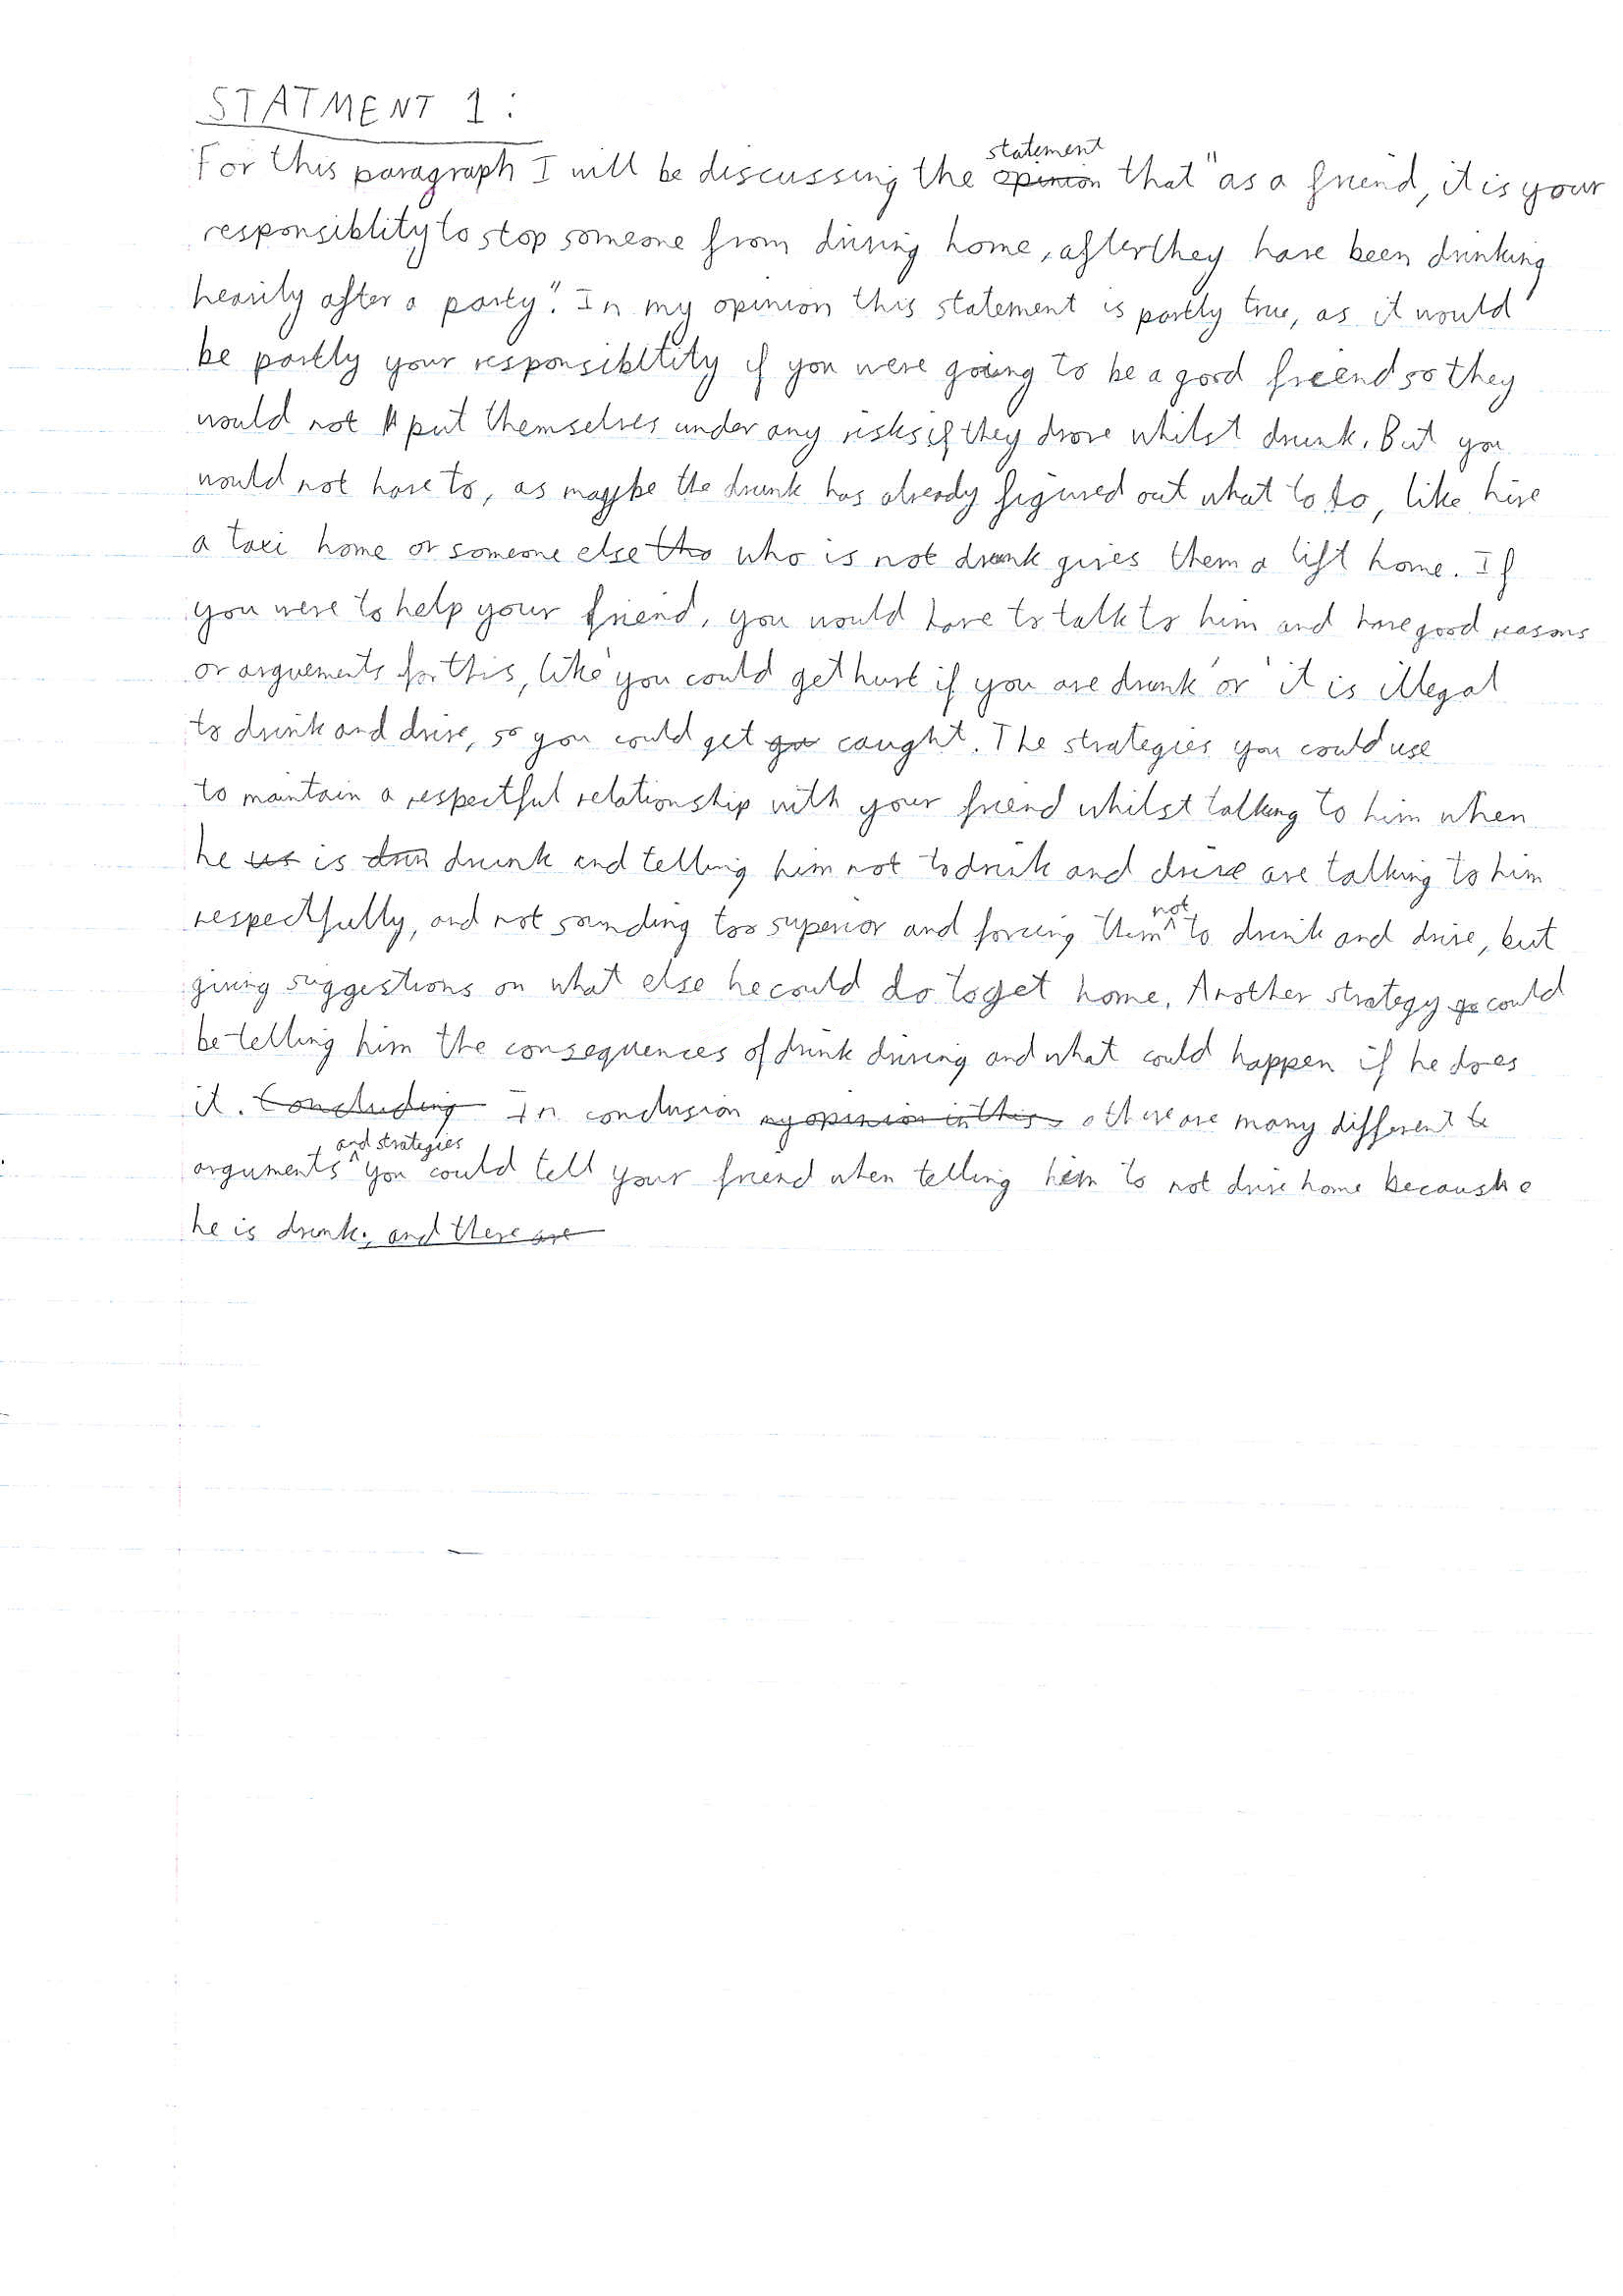 STATMENT 1 :
For this paragraph I will be discussing the statement that "as a friend, it is your
responsiblity to stop someone from driving home, after they have been drinking
heavily after a party". In my opinion this statement is partly true, as it would
be partly your responsibltity if you were going to be a good freend so they
would not put themselves under any risks if they drove whilst drunk. But you
would not have to, as maybe the drunk has already figured out what to do, like hire
a taxi home or someone else who is not drunk gives them a lift home. If
you were to help your friend, you would have to talk to him and have good reasons
or arguements for this, like 'you could get hurt if you are drunk' or 'it is illegal
to drink and drive, so you could get caught. The strategies you could use
to maintain a respectful relationship with your friend whilst talking to him when
he is drunk and telling him not to drink and drive are talking to him
respectfully, and not sounding too superior and forcing them not to drink and drive, but
giving suggestions on what else he could do to get home. Another strategy could
be telling him the consequences of drink driving and what could happen if he does
it. In conclusion there are many different
arguments and strategies you could tell your friend when telling him to not drive home because
he is drunk.